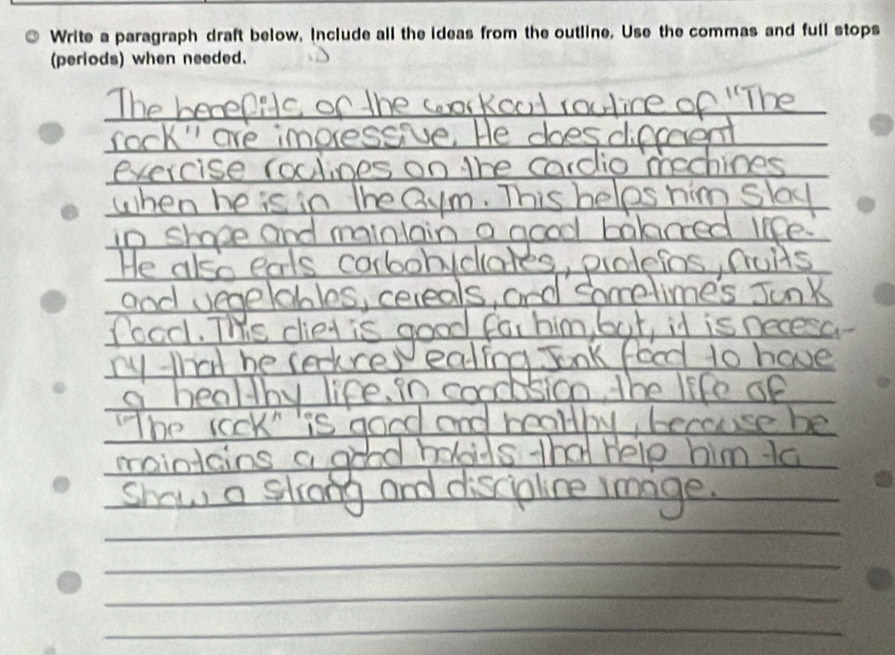 Write a paragraph draft below. Include all the ideas from the outline. Use the commas and full stops
(periods) when needed.
The benefits of the workout routine of "The
rock" are impressive. He does different
exercise routines on the cardio mechines
when he is in the Gym. This helps him stay
in shape and maintain a good balanced life.
He also eats carbohydrates, proteins, fruits
and vegetables, cereals, and sometime's Junk
food. This diet is good for him, but, it is necesa-
ry that he reduces eating Junk food to have
a healthy life. in conclusion, the life of
"The rock" is good and healthy, because he
maintains a good habits that help him to
show a strong and discipline image.